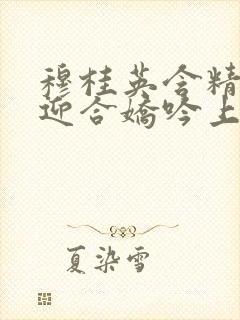 穆桂英含精
迎合娇吟上
夏染雪